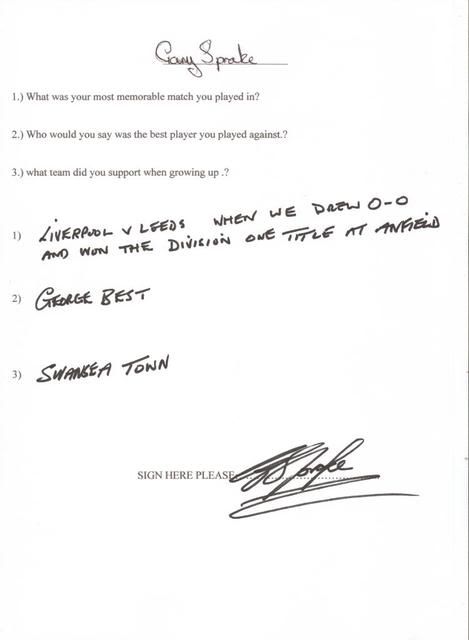 Gary Sprake
1.) What was your most memorable match you played in?
2.) Who would you say was the best player you played against.?
3.) what team did you support when growing up .?
1) LIVERPOOL V LEEDS WHEN WE DREW 0-0
AND WON THE DIVISION ONE TITLE AT ANFIELD
2) GEORGE BEST
3) SWANSEA TOWN
SIGN HERE PLEASE G Sprake